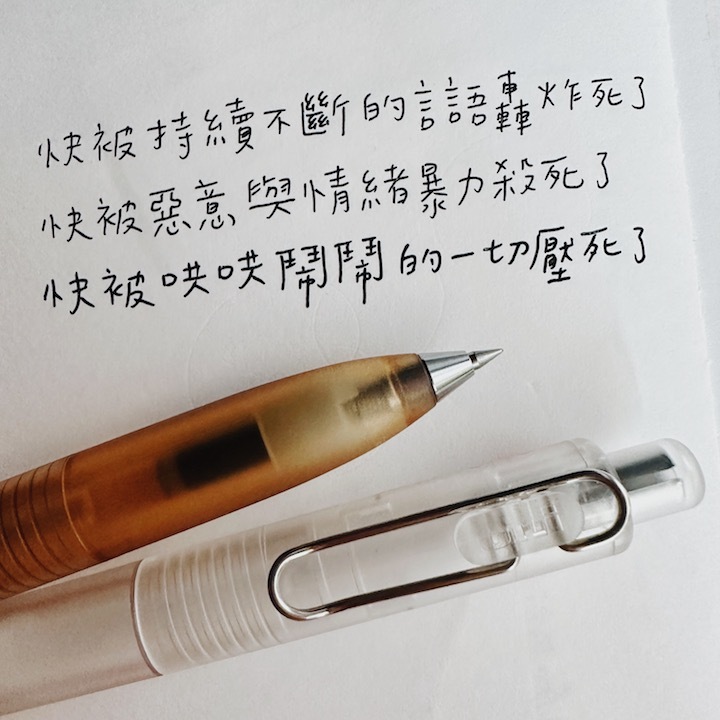 快被持續不斷的言語轟炸死了
快被惡意與情緒暴力殺死了
快被哄哄鬧鬧的一切壓死了